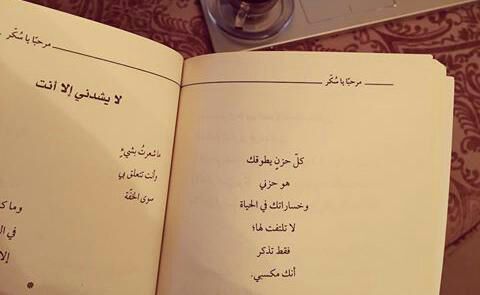 مرحبًا يا سُكّر
كلّ حزنٍ يطوقك
هو حزني
وخساراتك في الحياة
لا تلتفت لها؛
فقط تذكر
أنك مكسبي.
مرحبًا يا سُكّر
لا يشدني إلا أنت
ما شعرتُ بشيءٍ
وأنت تتعلق بي
سوى الخفّة
وما
في
*